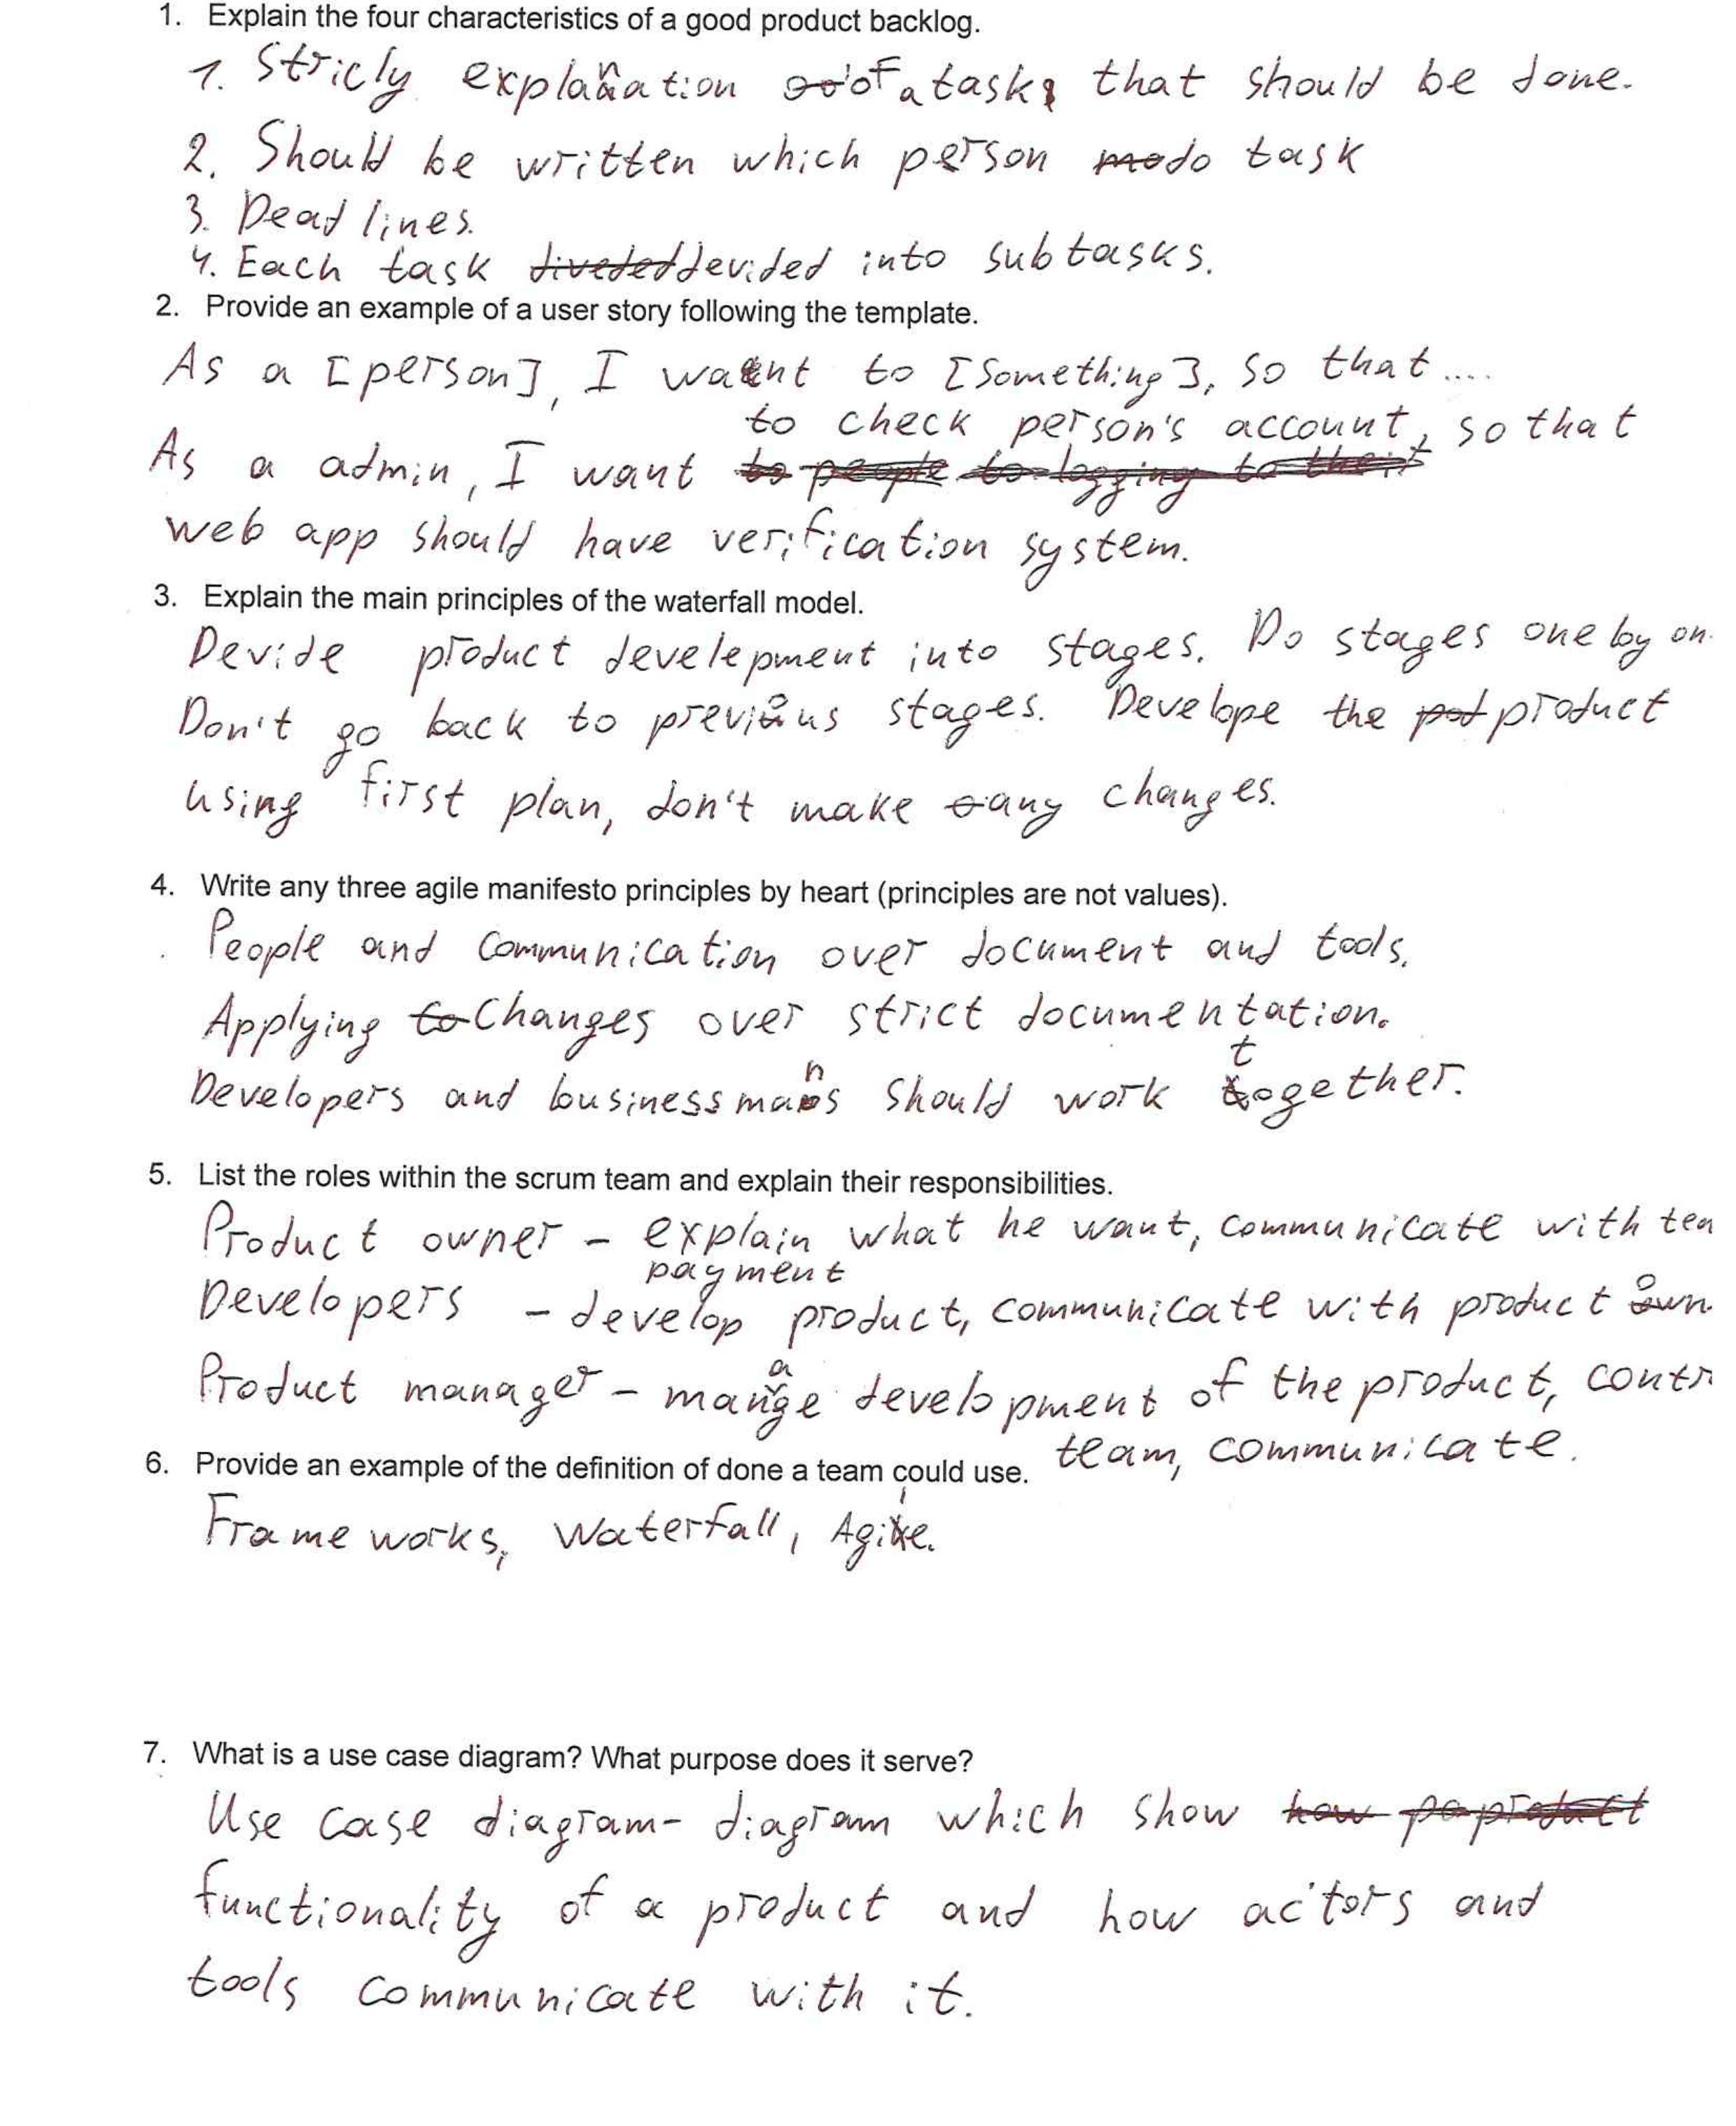 1. Explain the four characteristics of a good product backlog.
1. Stricly explanation of a task that should be done.
2. Should be written which person do task
3. Deadlines.
4. Each task devided into subtasks.
2. Provide an example of a user story following the template.
As a [person], I want to [something], so that....
to check person's account, so that
As a admin, I want
web app should have verification system.
3. Explain the main principles of the waterfall model.
Devide product develepment into stages. Do stages one by on
Don't go back to previous stages. Develope the product
using first plan, don't make any changes.
4. Write any three agile manifesto principles by heart (principles are not values).
People and communication over document and tools.
Applying changes over strict documentation.
Developers and businessmans should work together.
5. List the roles within the scrum team and explain their responsibilities.
Product owner - explain what he want, communicate with tea
payment
Developers - develop product, communicate with product own
Product manager - manage development of the product, contr
team, communicate.
6. Provide an example of the definition of done a team could use.
Frameworks, Waterfall, Agile.
7. What is a use case diagram? What purpose does it serve?
Use case diagram - diagram which show
functionality of a product and how actors and
tools communicate with it.